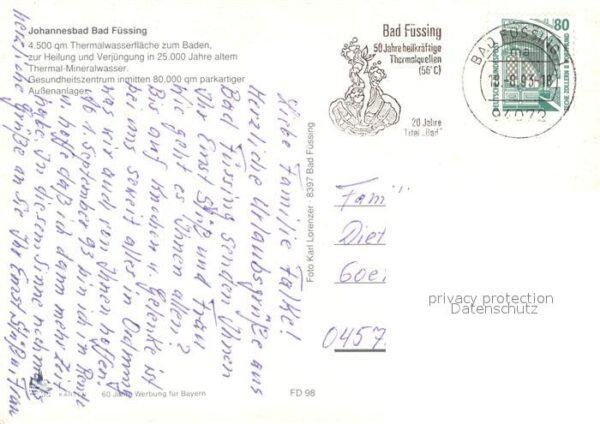 Johannesbad Bad Füssing
4.500 qm Thermalwasserfläche zum Baden,
zur Heilung und Verjüngung in 25.000 Jahre altem
Thermal-Mineralwasser.
Gesundheitszentrum inmitten 80.000 qm parkartiger
Außenanlagen
Bad Füssing
50 Jahre heilkräftige
Thermalquellen
(56°C)
20 Jahre
Titel „Bad"
BAD FÜSSING
mail
94072
80
DEUTSCHE BUNDESPOST
Liebe Familie Falke!
Herzliche Urlaubsgrüße aus
Bad Füssing senden Ihnen
Ihr Ernst und Frau
Wie geht es Ihnen allen?
Bis auf Knochen u. Gelenke ist
bei uns soweit alles in Ordnung
was wir auch von Ihnen hoffen.
Ab 1. September 93 bin ich in Rente
u. hoffe daß ich dann mehr Zeit
habe. In diesem Sinne nochmals
herzliche Grüße an Sie Ihr Ernst u. Frau
Foto Karl Lorenzer · 8397 Bad Füssing
Fam
Diet
Goe
0457
privacy protection
Datenschutz
60 Jahre Werbung für Bayern
FD 98